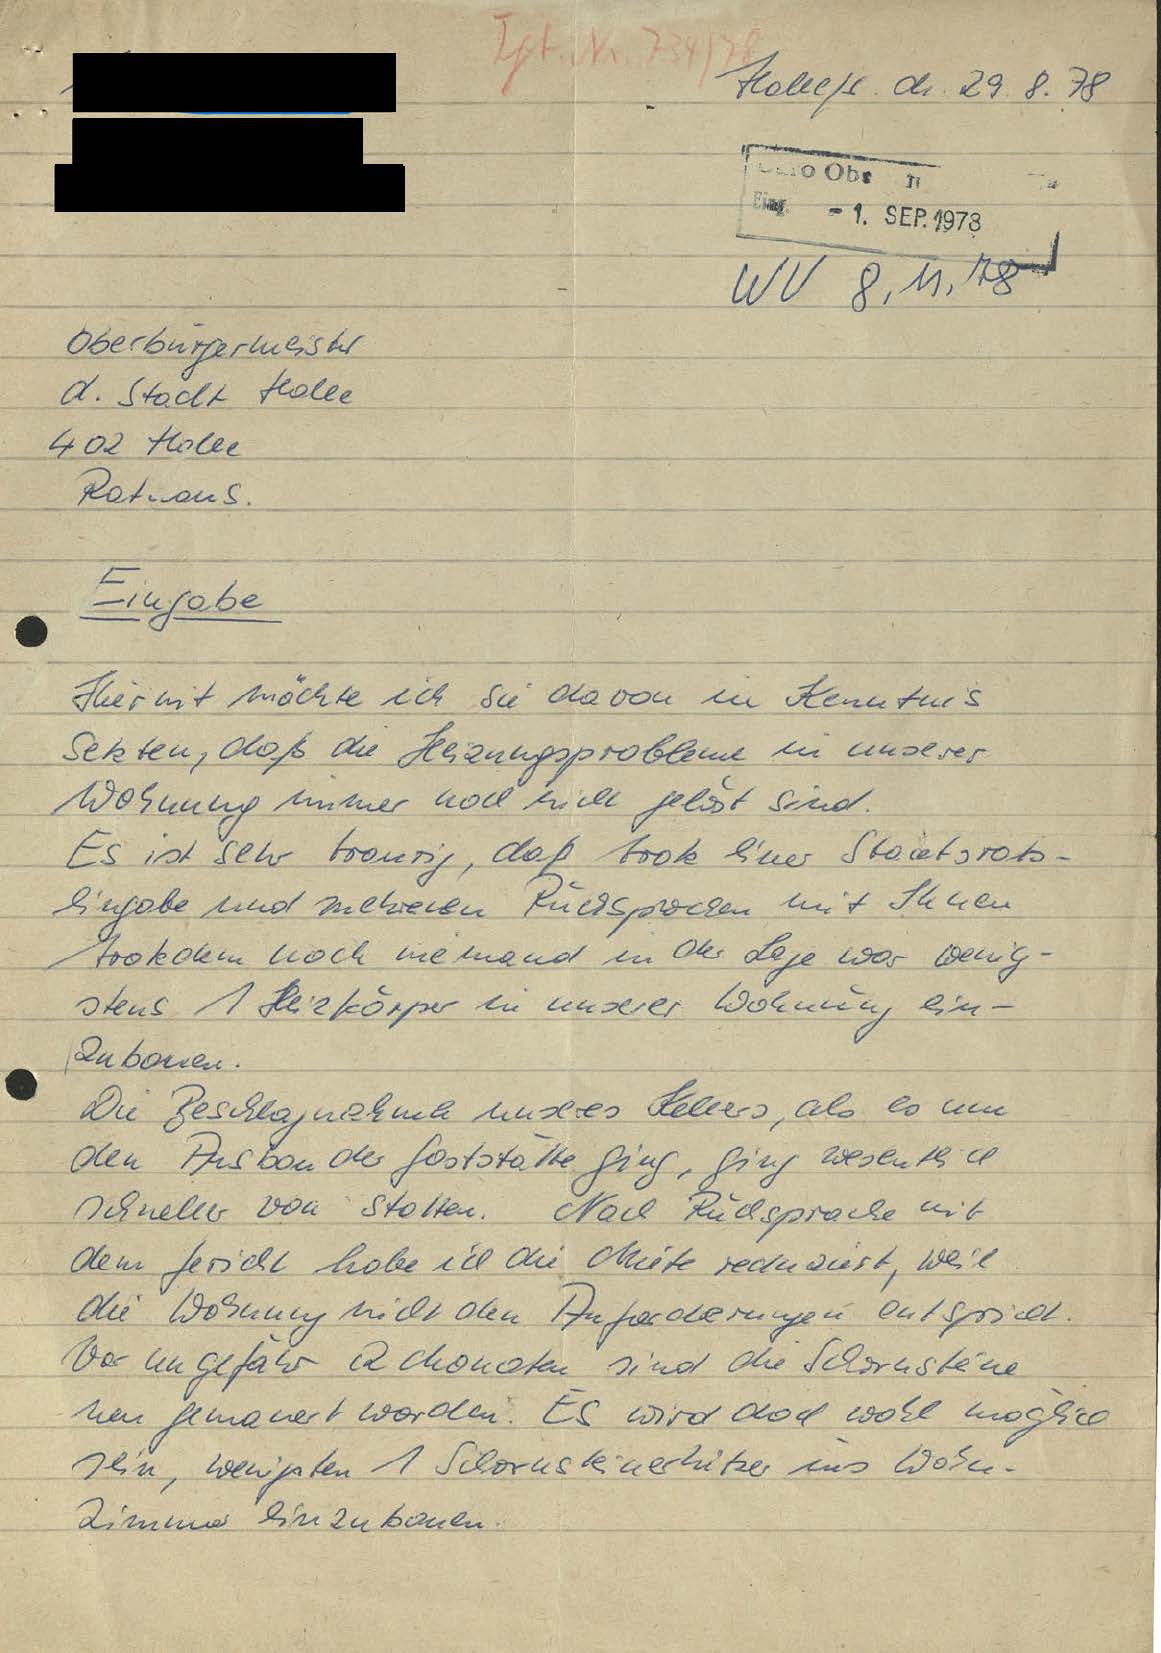 Tgb. Nr. 734/78
Halle/S. d. 29. 8. 78
Büro Obe
Eing. - 1. SEP. 1978
WV 8.11.78
Oberbürgermeister
d. Stadt Halle
402 Halle
Rathaus.
Eingabe
Hiermit möchte ich Sie davon in Kenntnis
setzten, daß die Heizungsprobleme in unserer
Wohnung immer noch nicht gelöst sind.
Es ist sehr traurig, daß trotz einer Staatsrats-
eingabe und mehreren Rücksprachen mit Ihnen
trotzdem noch niemand in der Lage war wenig-
stens 1 Heizkörper in unserer Wohnung ein-
zubauen.
Die Beschlagnahme unseres Kellers, als es um
den Ausbau der Gaststätte ging, ging wesentlich
schneller von statten. Nach Rücksprache mit
dem Gericht habe ich die Miete reduziert, weil
die Wohnung nicht den Anforderungen entspricht.
Vor ungefähr 2 Monaten sind die Schornsteine
neu gemauert worden. Es wird doch wohl möglich
sein, wenigsten 1 Schornsteinerhitzer ins Wohn-
zimmer einzubauen.